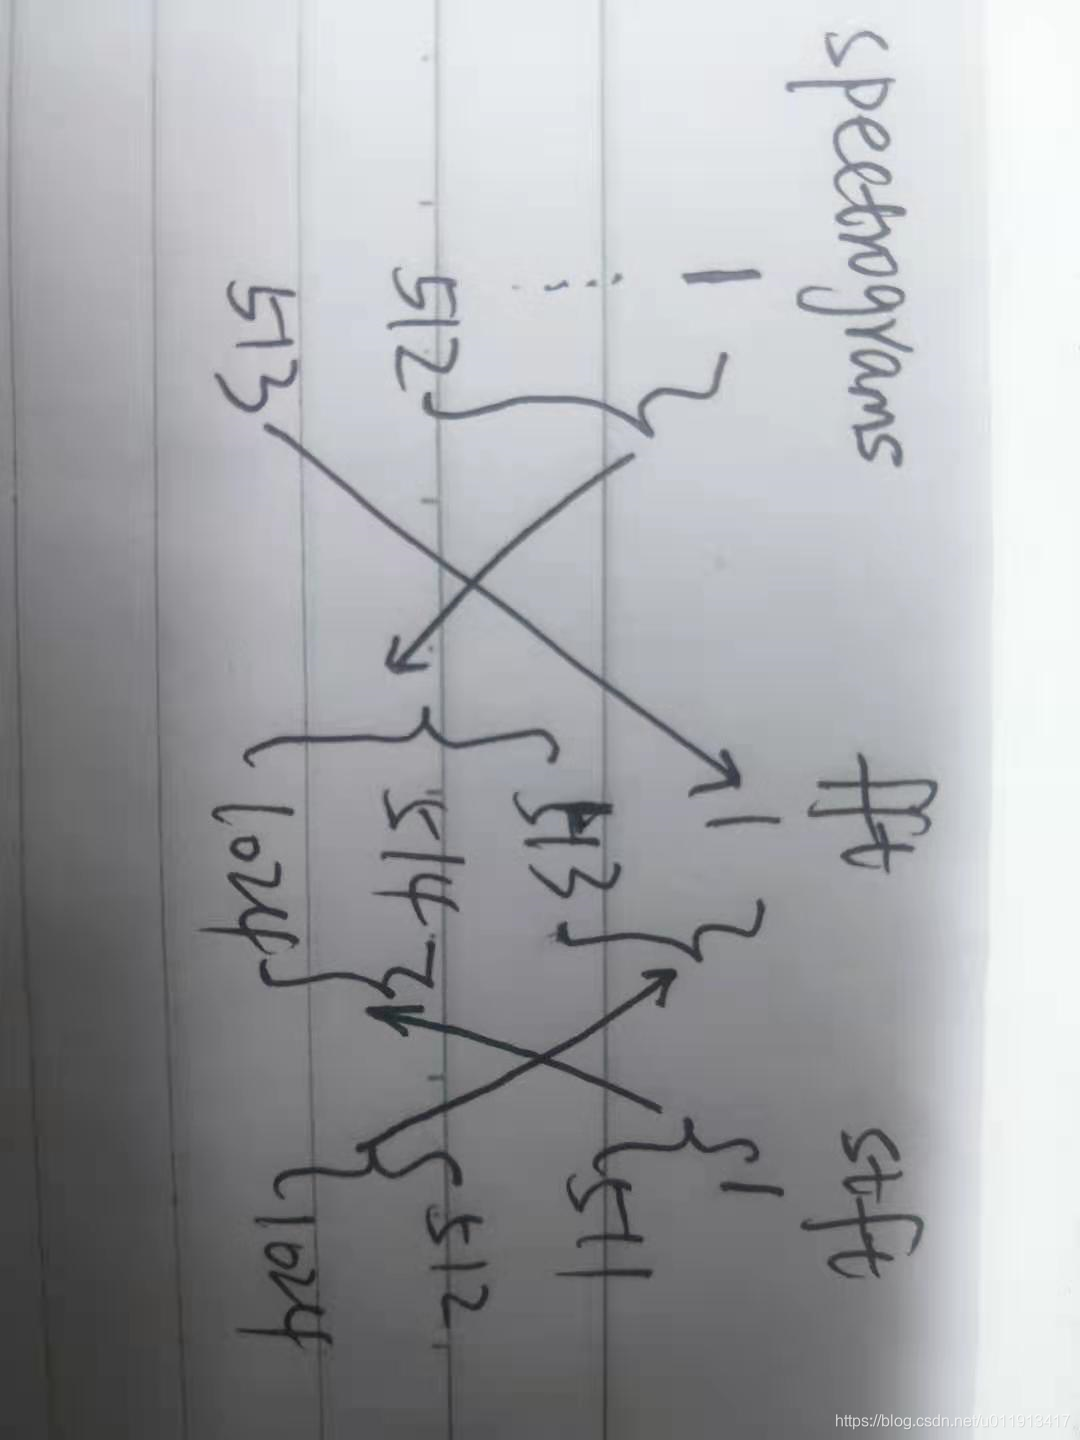 spectrograms fft stft
1 1 1
...... 513 511
512 514 512
513 1024 1024
https://blog.csdn.net/u011913417